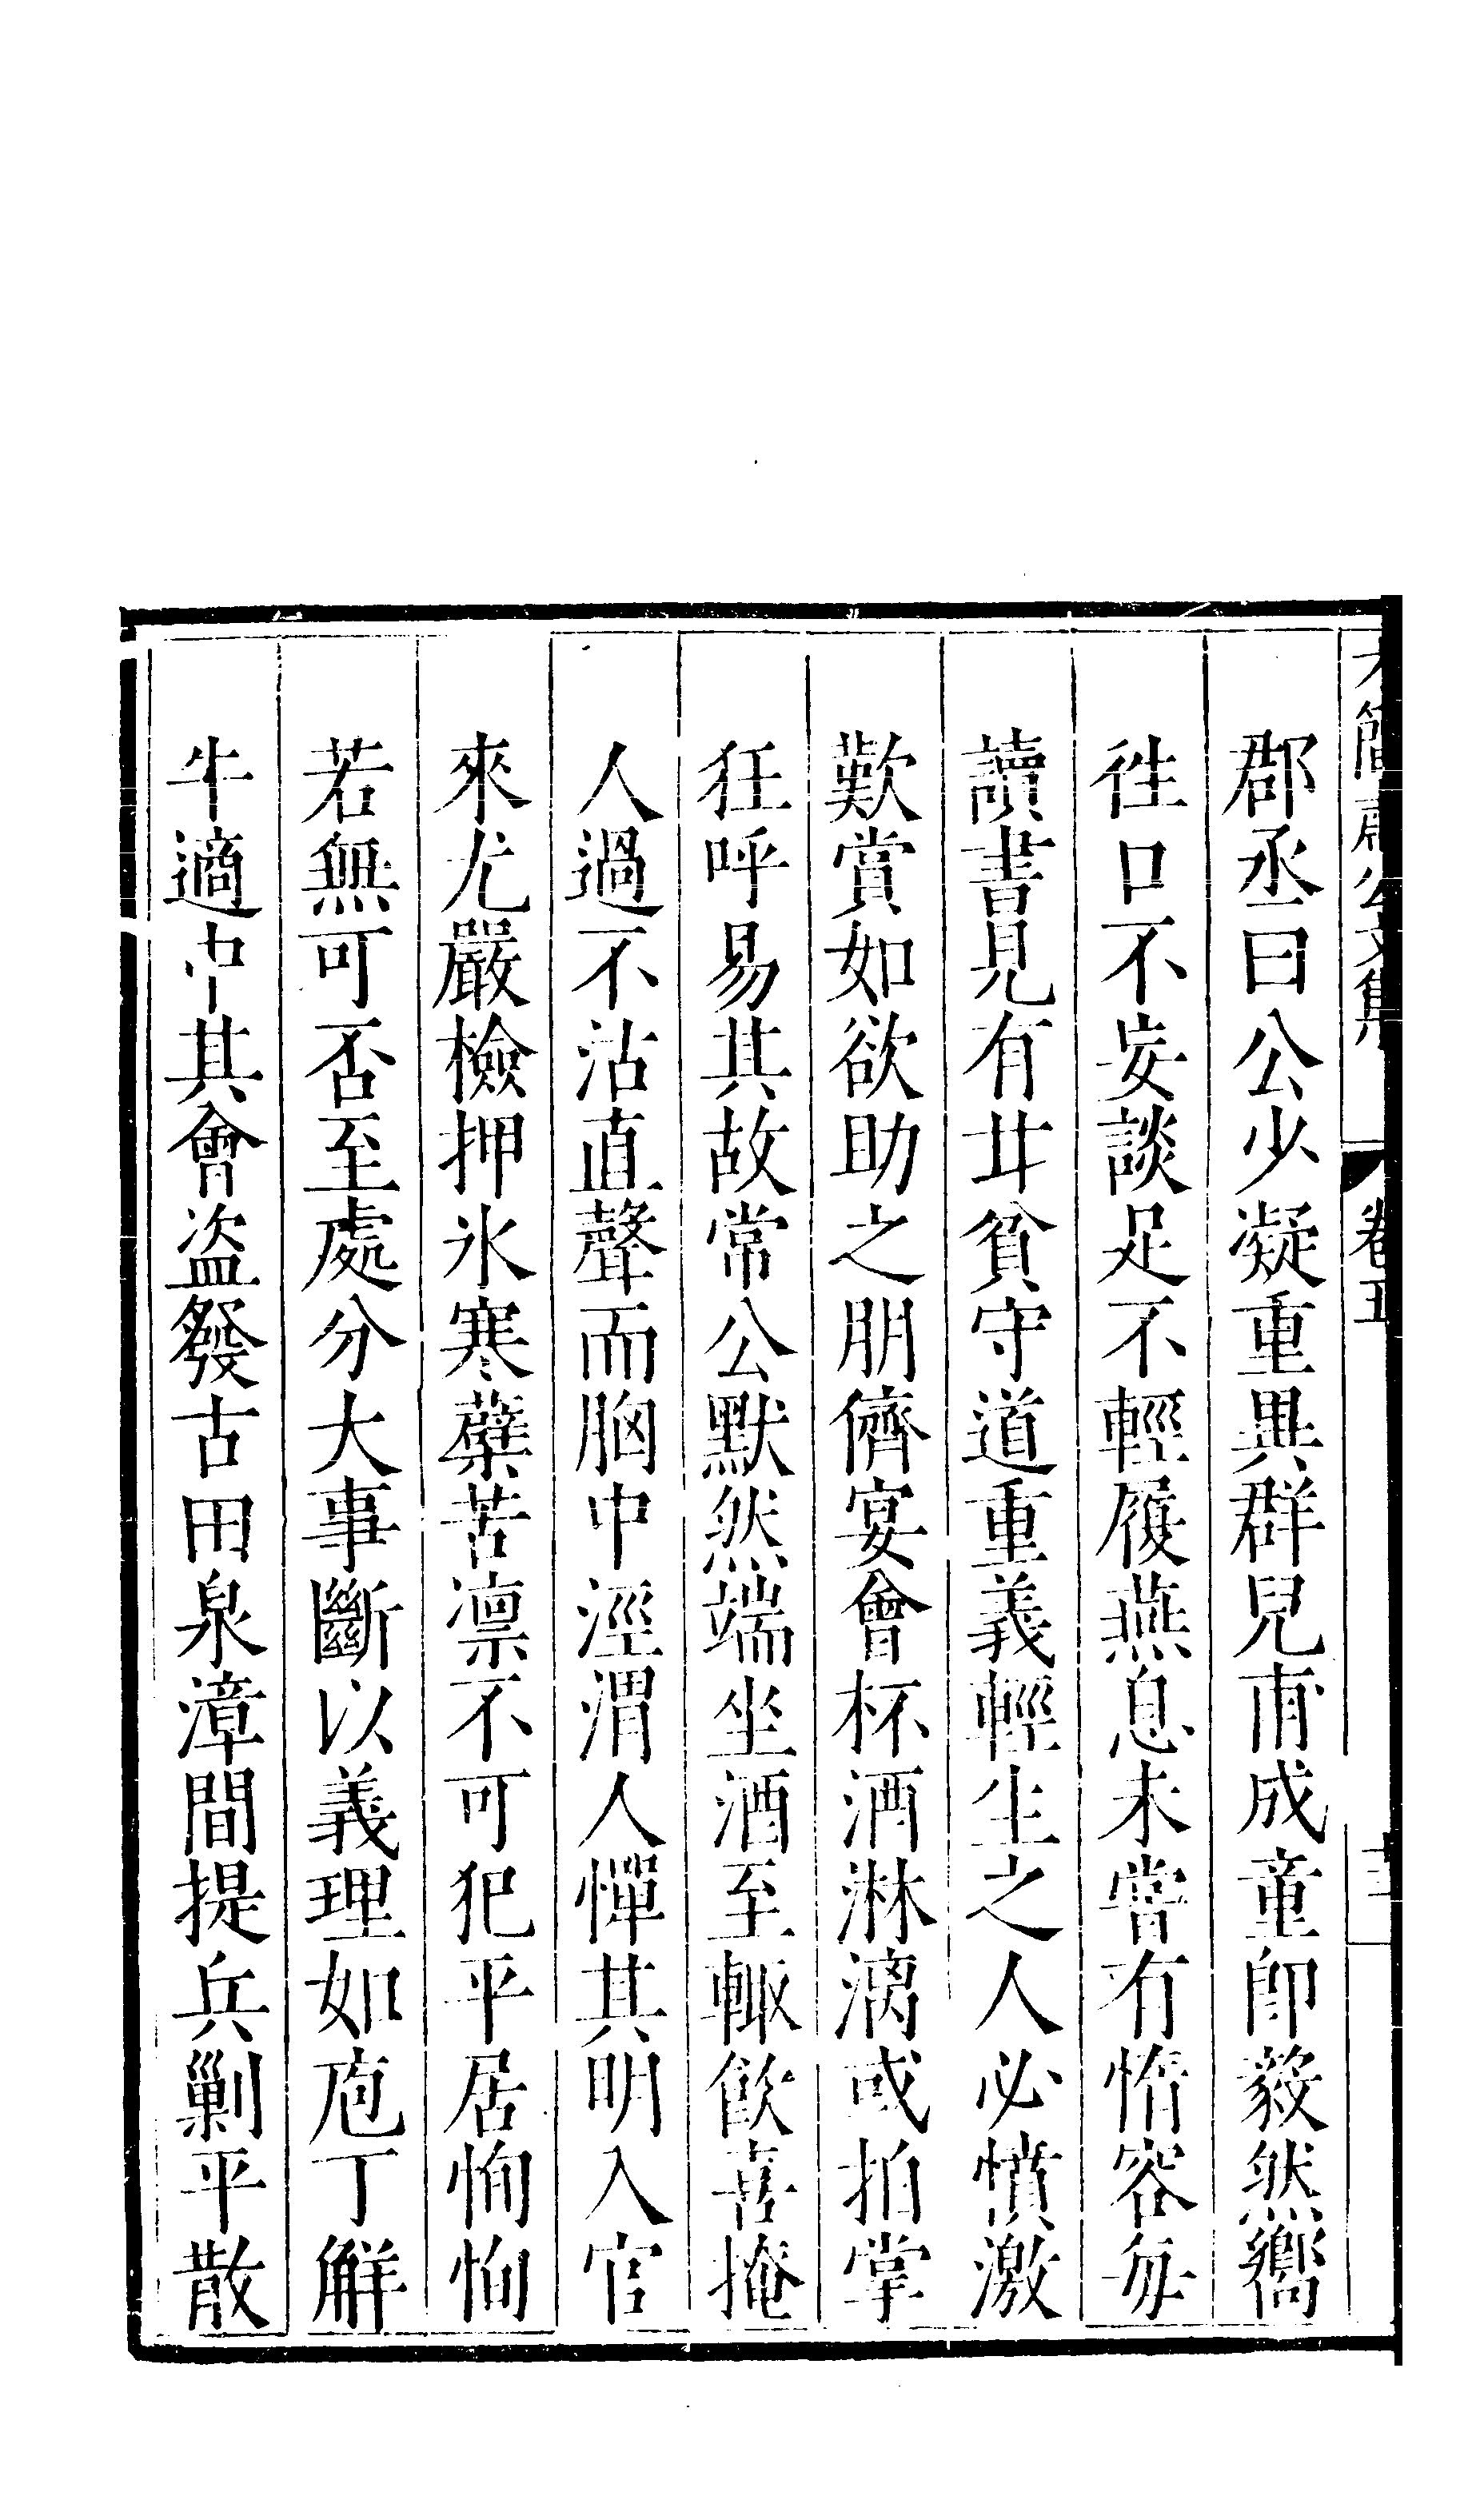 簡肅公文集 卷五
郡丞曰公少凝重異群兒甫成童即毅然嚮
徃口不妄談足不輕履燕息未嘗有惰容每
讀書見有甘貧守道重義輕生之人必憤激
歎賞如欲助之朋儕宴會杯酒淋漓或拍掌
狂呼易其故常公默然端坐酒至輙飲喜掩
人過不沽直聲而胸中涇渭人憚其明入官
來尤嚴檢押氷寒蘗苦凛不可犯平居恂恂
若無可否至處分大事斷以義理如庖丁觧
牛適中其會盗發古田泉漳間提兵剿平散